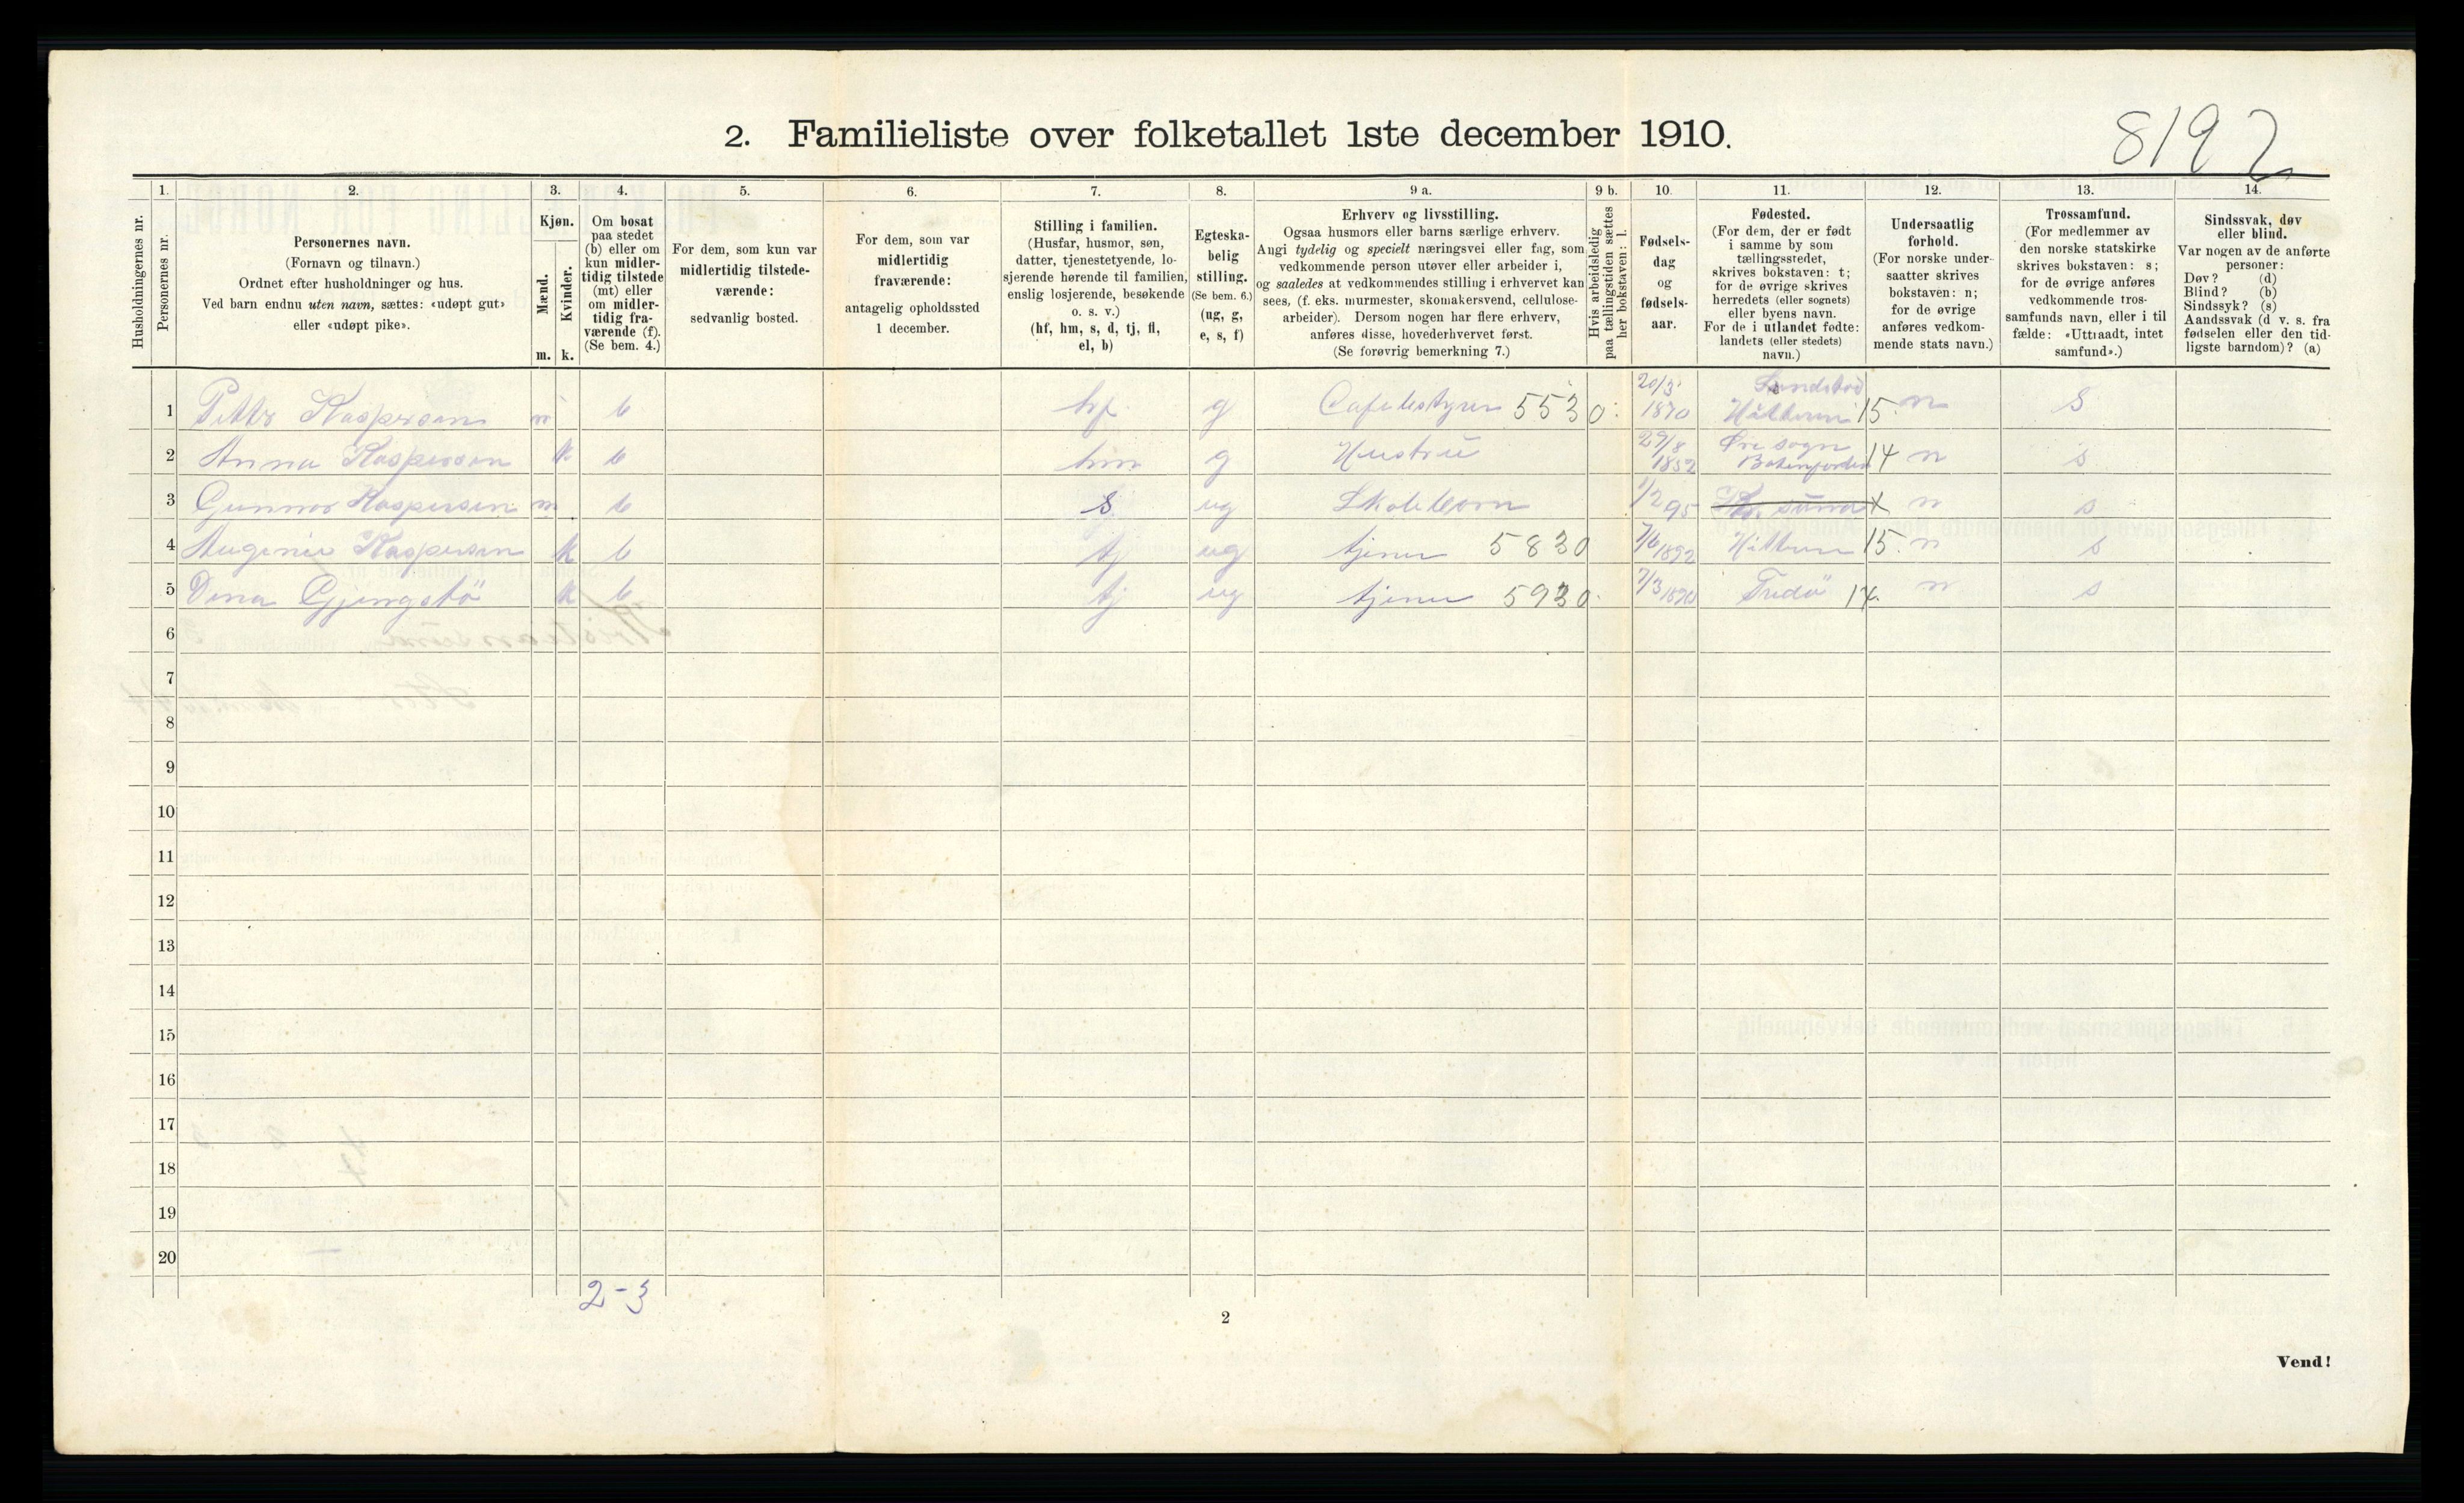 2. Familieliste over folketallet 1ste december 1910.
8192
1. 2. 3. 4. 5. 6. 7. 8. 9 a. 9 b. 10. 11. 12. 13. 14.
Husholdningernes nr.
Personernes nr.
Personernes navn.
(Fornavn og tilnavn.)
Ordnet efter husholdninger og hus.
Ved barn endnu uten navn, sættes: «udøpt gut»
eller «udøpt pike».
Kjøn.
Mænd.
Kvinder.
m. k.
Om bosat
paa stedet
(b) eller om
kun midler-
tidig tilstede
(mt) eller
om midler-
tidig fra-
værende (f).
(Se bem. 4.)
For dem, som kun var
midlertidig tilstede-
værende:
sedvanlig bosted.
For dem, som var
midlertidig
fraværende:
antagelig opholdssted
1 december.
Stilling i familien.
(Husfar, husmor, søn,
datter, tjenestetyende, lo-
sjerende hørende til familien,
enslig losjerende, besøkende
o. s. v.)
(hf, hm, s, d, tj, fl,
el, b)
Egteska-
belig
stilling.
(Se bem. 6.)
(ug, g,
e, s, f)
Erhverv og livsstilling.
Ogsaa husmors eller barns særlige erhverv.
Angi tydelig og specielt næringsvei eller fag, som
vedkommende person utøver eller arbeider i,
og saaledes at vedkommendes stilling i erhvervet kan
sees, (f. eks. murmester, skomakersvend, cellulose-
arbeider). Dersom nogen har flere erhverv,
anføres disse, hovederhvervet først.
(Se forøvrig bemerkning 7.)
Hvis arbeidsledig
paa tællingstiden sættes
her bokstaven: l.
Fødsels-
dag
og
fødsels-
aar.
Fødested.
(For dem, der er født
i samme by som
tællingsstedet,
skrives bokstaven: t;
for de øvrige skrives
herredets (eller sognets)
eller byens navn.
For de i utlandet fødte:
landets (eller stedets)
navn.)
Undersaatlig
forhold.
(For norske under-
saatter skrives
bokstaven: n;
for de øvrige
anføres vedkom-
mende stats navn.)
Trossamfund.
(For medlemmer av
den norske statskirke
skrives bokstaven: s;
for de øvrige anføres
vedkommende tros-
samfunds navn, eller i til
fælde: «Uttraadt, intet
samfund».)
Sindssvak, døv
eller blind.
Var nogen av de anførte
personer:
Døv? (d)
Blind? (b)
Sindssyk? (s)
Aandssvak (d v. s. fra
fødselen eller den tid-
ligste barndom)? (a)
1 Kaspersen m b hf g Cafebestyrer 5530 20/3 1870 15 n s
2 Anna Kaspersen k b hm g Hustrü 29/8 1852 Øre sogn 14 n s
3 Gunnar Kaspersen m b s ug Skolebarn 1/2 95 Kr. sünd t n s
4 Kaspersen k b tj ug tjener 5830 7/6 1892 15. n s
5 Dina k b tj ug tjener 5930 7/3 n s
6
7
8
9
10
11
12
13
14
15
16
17
18
19
20
2-3
2
Vend!